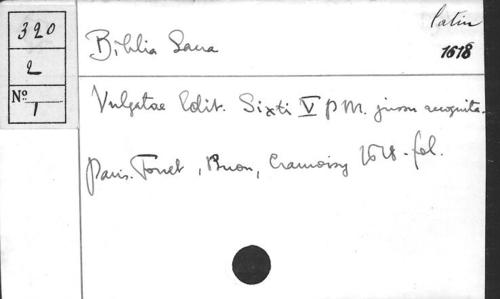 320
2
Nº 1
Latin
1618
Biblia Sacra
Vulgatae Edit. Sixti V P M. jussu recognita.
Paris. Fouet, Buon, Cramoisy 1618. fol.